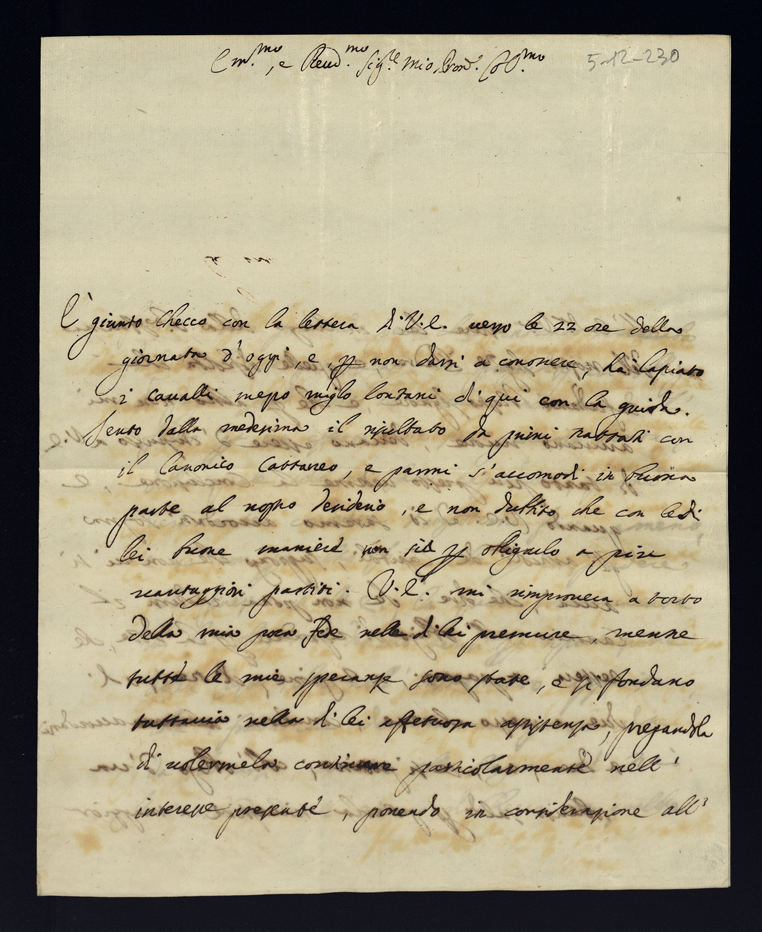 Em.mo, e Reud.mo Sig.re mio Pron.e Col.mo
5-12-230
È giunto Checco con la lettera di V.E. verso le 22 ore della
giornata d'oggi, e p non darsi a conoscere, ha lasciato
i cavalli mezo miglio lontani di qui con la guida.
Sento dalla medesima il risultato de primi trattati con
il Canonico Cattaneo, e parmi s'accomodi in buona
parte al nostro desiderio, e non dubito, che con le di
lei buone maniere non sia p obligarlo a più
vantaggiosi partiti. V.E. mi rimprovera a torto
della mia poca fede nelle di lei premure, mentre
tutte le mie speranze sono state, e si fondano
tuttavia nella di lei affettuosa assistenza, pregandola
di volermela continuare particolarmente nell'
interesse presente, ponendo in considerazione all'